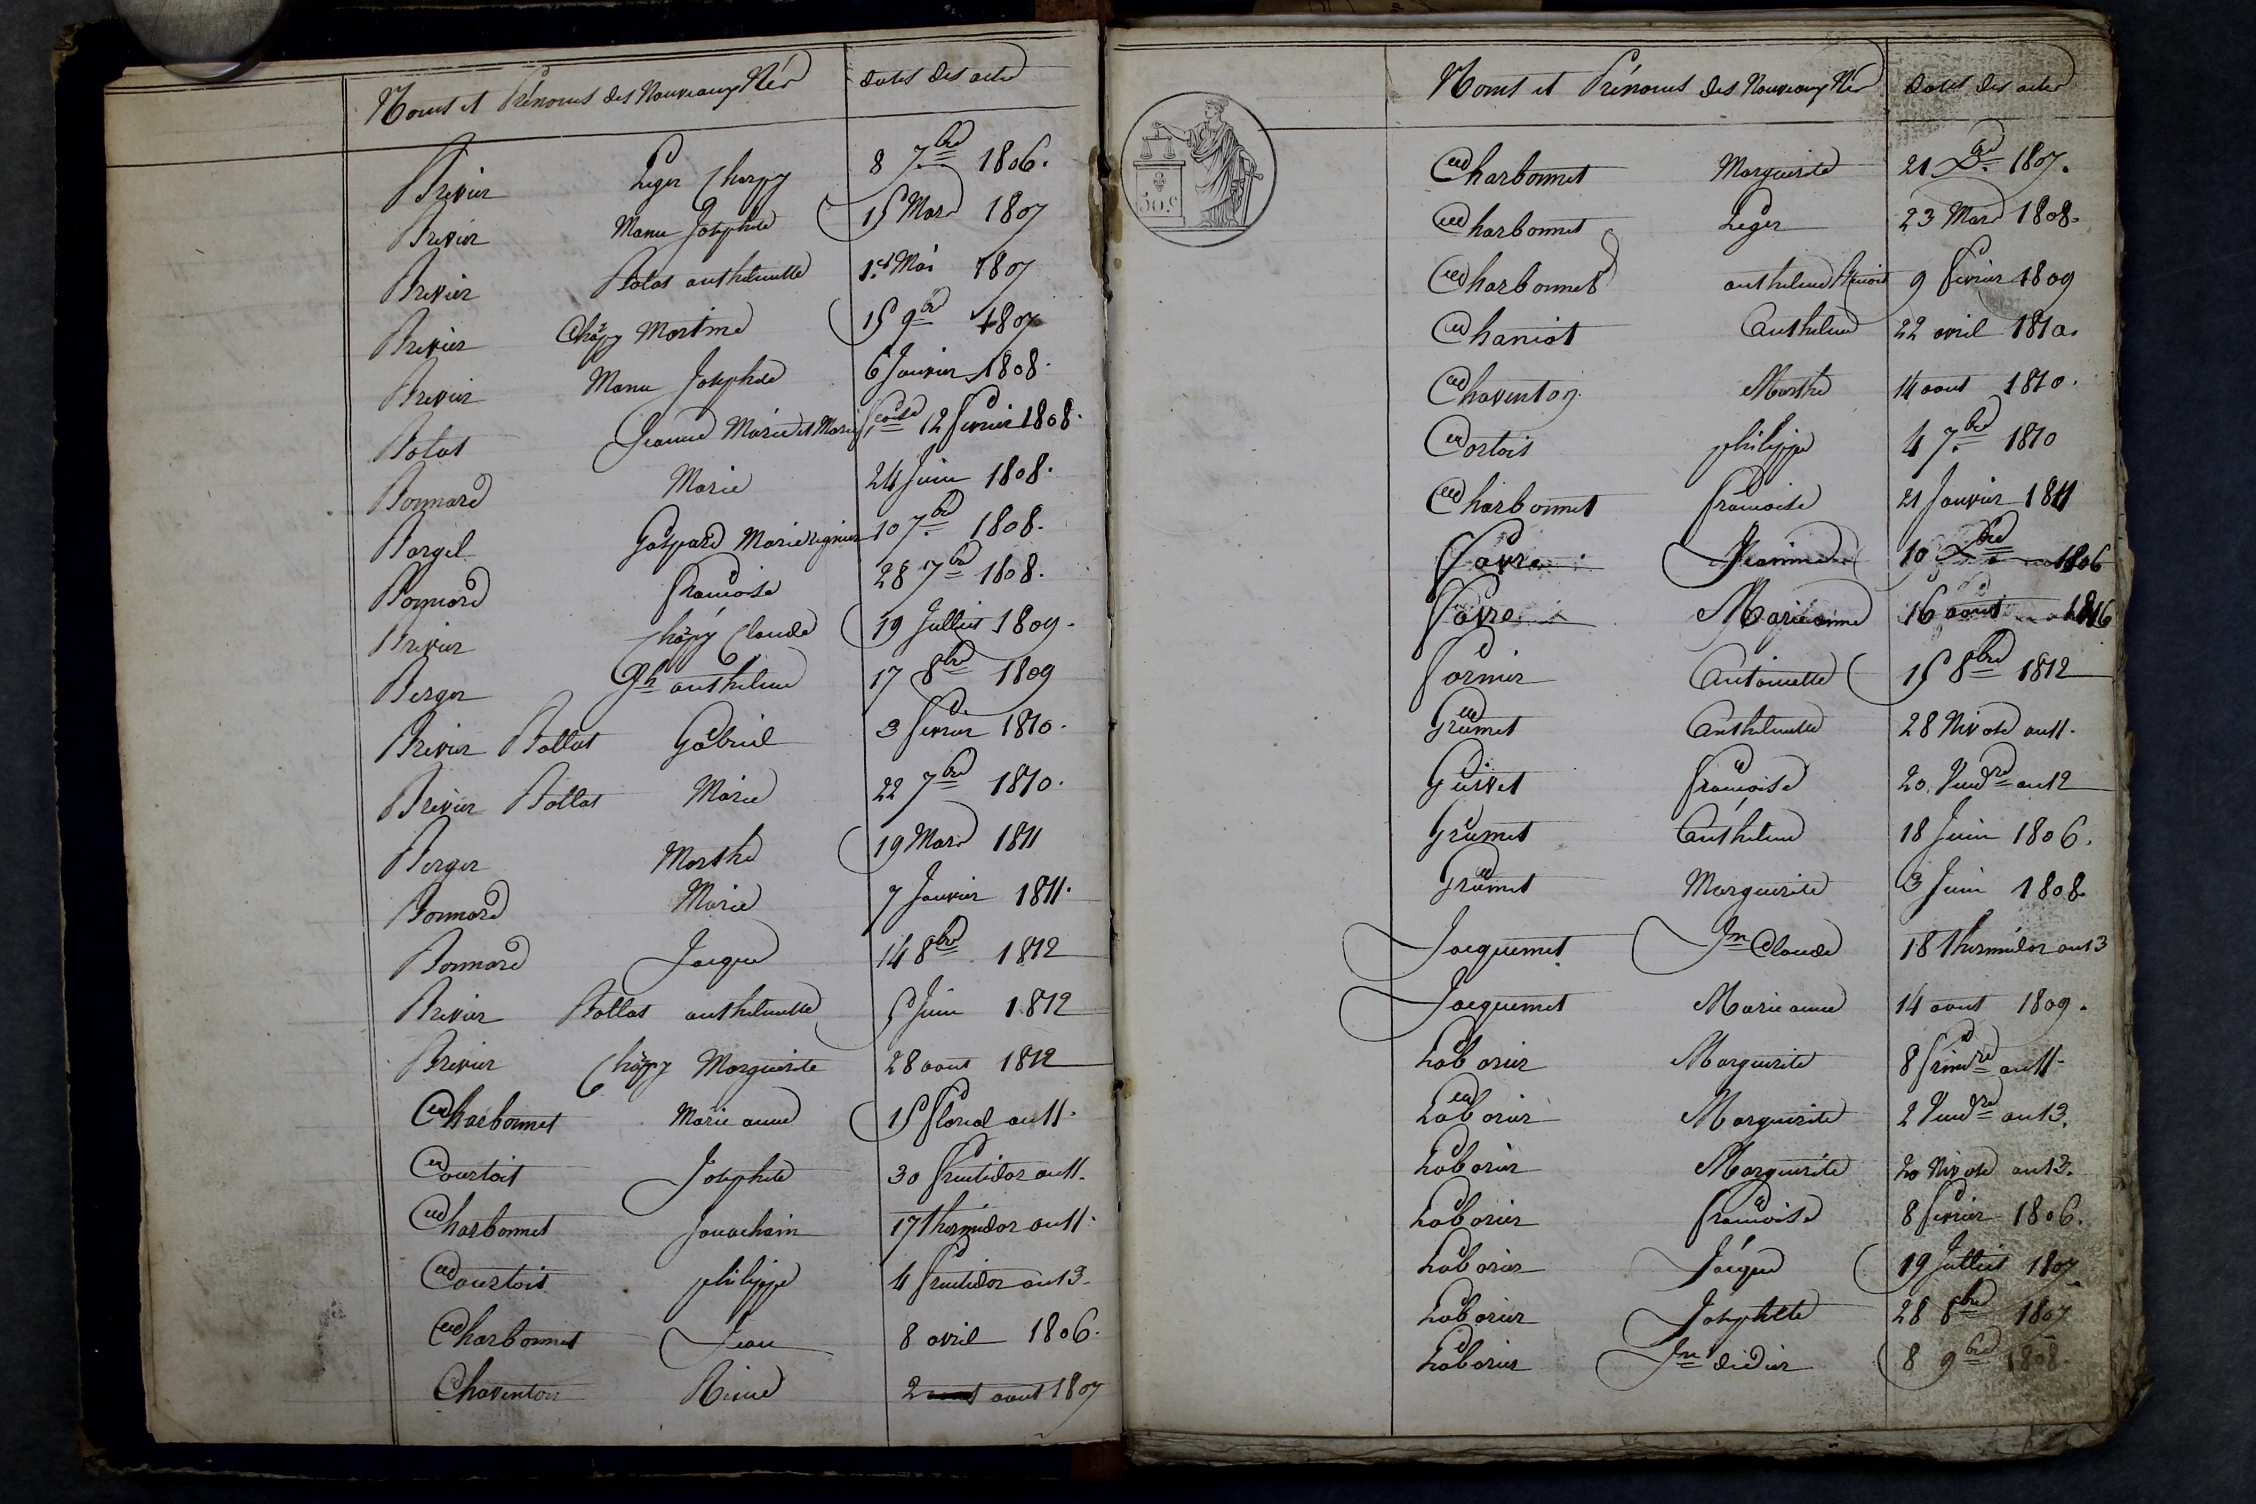 Noms et Prénoms des Nouveaux Nés dates des actes
Brevier Leger Charpy 8 7bre 1806.
Brevier Marie Josephte 15 Mars 1807
Brevier Bolat anthelmette 1er Mai 1807
Brevier Chapy Martine 15 9bre 1807
Brevier Marie Josephte 6 Janvier 1808.
Bolat Jeanne Marie et Marie 12 fevrier 1808.
Bonnard Marie 24 Juin 1808.
Bargel Gaspard Marie 10 7bre 1808.
Bonnard francoise 28 7bre 1808.
Brevier Chapy Claude 19 Jullet 1809.
Berger Jh anthelme 17 8bre 1809
Brevier Bollat Gabriel 3 fevrier 1810.
Brevier Bollat Marie 22 7bre 1810.
Berger Marthe 19 Mars 1811
Bonnard Marie 7 Janvier 1811.
Bonnard Jacque 14 8bre 1812
Brevier Bollat anthelmette 5 Juin 1812
Brevier Chapy Marguerite 28 aout 1812
Charbonnet Marie anne 15 floreal an 11.
Courtois Josephte 30 fructidor an 11.
Charbonnet Joachain 17 thermidor an 11.
Courtois philippe 4 fructidor an 13.
Charbonnet Jean 8 avril 1806.
Chaventon Reine 2 aout 1807
Noms et Prénoms des Nouveaux Nés dates des actes
50 c.
Charbonnet Marguerite 21 Xbre 1807.
Charbonnet Leger 23 Mars 1808.
Charbonnet anthelme Benoit 9 fevrier 1809
Chaniot Anthelme 22 avril 1810.
Chaventon Marthe 14 aout 1810.
Cortois philippe 4 7bre 1810
Charbonnet francoise 21 Janvier 1811
Favre Jeannine 10 Xbre 1806
Favre Marie anne 16 aout
Fornier Antoinette 15 8bre 1812
Grumet Anthelmette 28 Nivose an 11.
Guivet francoise 20 Vendre an 12
Grumet Anthelme 18 Juin 1806.
Grumet Marguerite 3 Juin 1808.
Jacquemet Jn Claude 18 thermidor an 13
Jacquemet Marie anne 14 aout 1809.
Laborier Marguerite 8 frimre an 11.
Laborier Marguerite 2 Vendre an 13.
Laborier Marguerite 20 Nivose an 13.
Laborier francoise 8 fevrier 1806.
Laborier Jacque 19 Jullet 1807
Laborier Josephte 28 8bre 1807
Laborier Jn didier 8 9bre 1808.